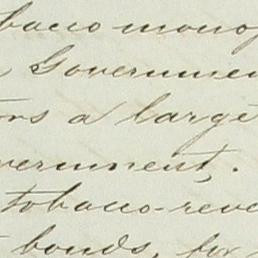 bacco monop
Governmen
ors a large
vernment.
tobacco-reve
bonds, for